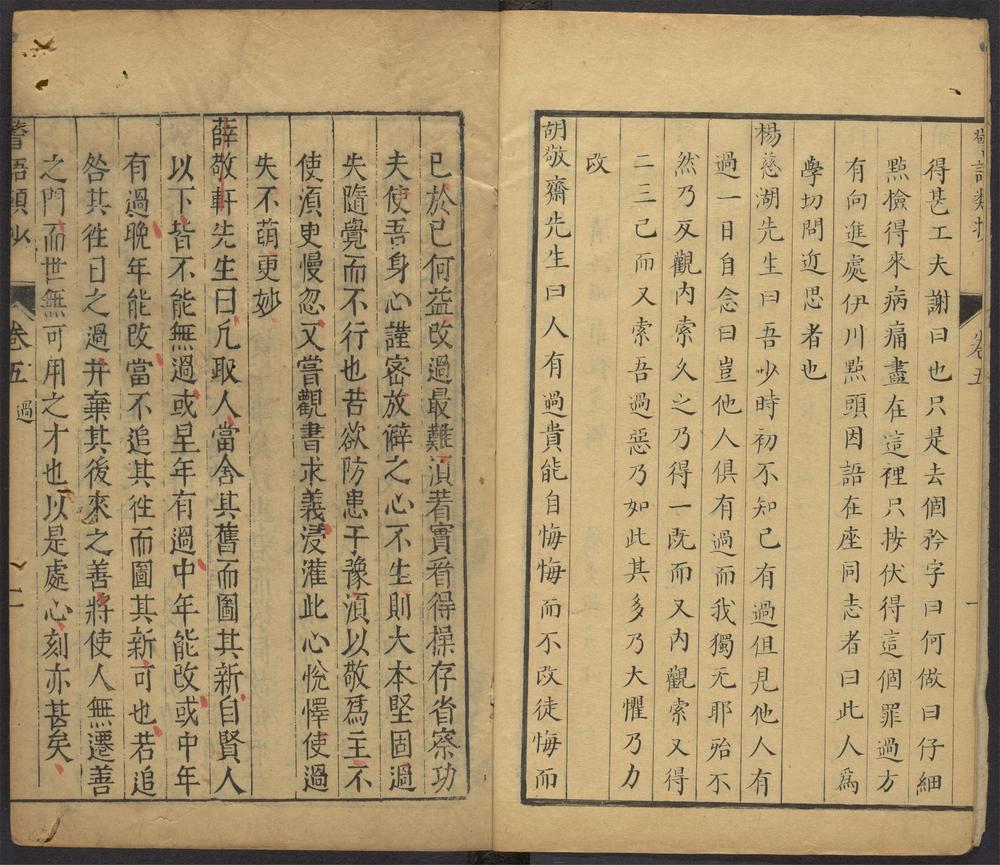 警語類抄 卷五 一
得甚工夫謝曰也只是去個矜字曰何做曰仔細
㸃檢得來病痛盡在這裡只按伏得這個罪過方
有向進處伊川㸃頭因語在座同志者曰此人爲
學切問近思者也
楊慈湖先生曰吾少時初不知己有過但見他人有
過一日自念曰豈他人俱有過而我獨无耶殆不
然乃反觀内索久之乃得一既而又内觀索又得
二三已而又索吾過惡乃如此其多乃大懼乃力
改
胡敬齋先生曰人有過貴能自悔悔而不改徒悔而
已於已何益改過最難湏着實省得操存省察功
夫使吾身心謹密放僻之心不生則大本堅固過
失隨覺而不行也若欲防患于豫湏以敬爲主不
使湏史慢忽又嘗觀書求義浸灌此心悅懌使過
失不萠更妙
薛敬軒先生曰凢取人當舍其舊而圖其新自賢人
以下皆不能無過或早年有過中年能改或中年
有過晚年能改當不追其徃而圖其新可也若追
咎其徃日之過并棄其後來之善將使人無遷善
之門而世無可用之才也以是處心刻亦甚矣
警語類抄 卷五 過 二